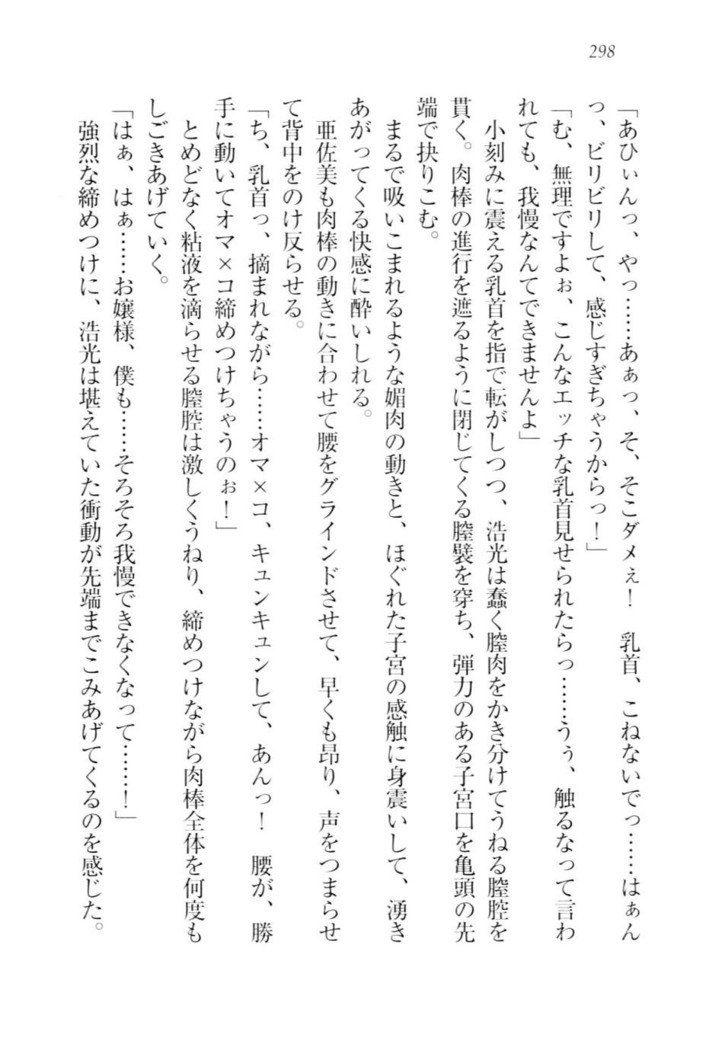 298
「あひぃんっ、やっ……あぁっ、そ、そこダメぇ！　乳首、こねないでっ……はぁん
っ、ビリビリして、感じすぎちゃうからっ！」
「む、無理ですよぉ、こんなエッチな乳首見せられたらっ……うぅ、触るなって言わ
れても、我慢なんてできませんよ」
　小刻みに震える乳首を指で転がしつつ、浩光は蠢く膣肉をかき分けてうねる膣腔を
貫く。肉棒の進行を遮るように閉じてくる膣襞を穿ち、弾力のある子宮口を亀頭の先
端で抉りこむ。
　まるで吸いこまれるような媚肉の動きと、ほぐれた子宮の感触に身震いして、湧き
あがってくる快感に酔いしれる。
　亜佐美も肉棒の動きに合わせて腰をグラインドさせて、早くも昂り、声をつまらせ
て背中をのけ反らせる。
「ち、乳首っ、摘まれながら……オマ×コ、キュンキュンして、あんっ！　腰が、勝
手に動いてオマ×コ締めつけちゃうのぉ！」
　とめどなく粘液を滴らせる膣腔は激しくうねり、締めつけながら肉棒全体を何度も
しごきあげていく。
「はぁ、はぁ……お嬢様、僕も……そろそろ我慢できなくなって……！」
　強烈な締めつけに、浩光は堪えていた衝動が先端までこみあげてくるのを感じた。